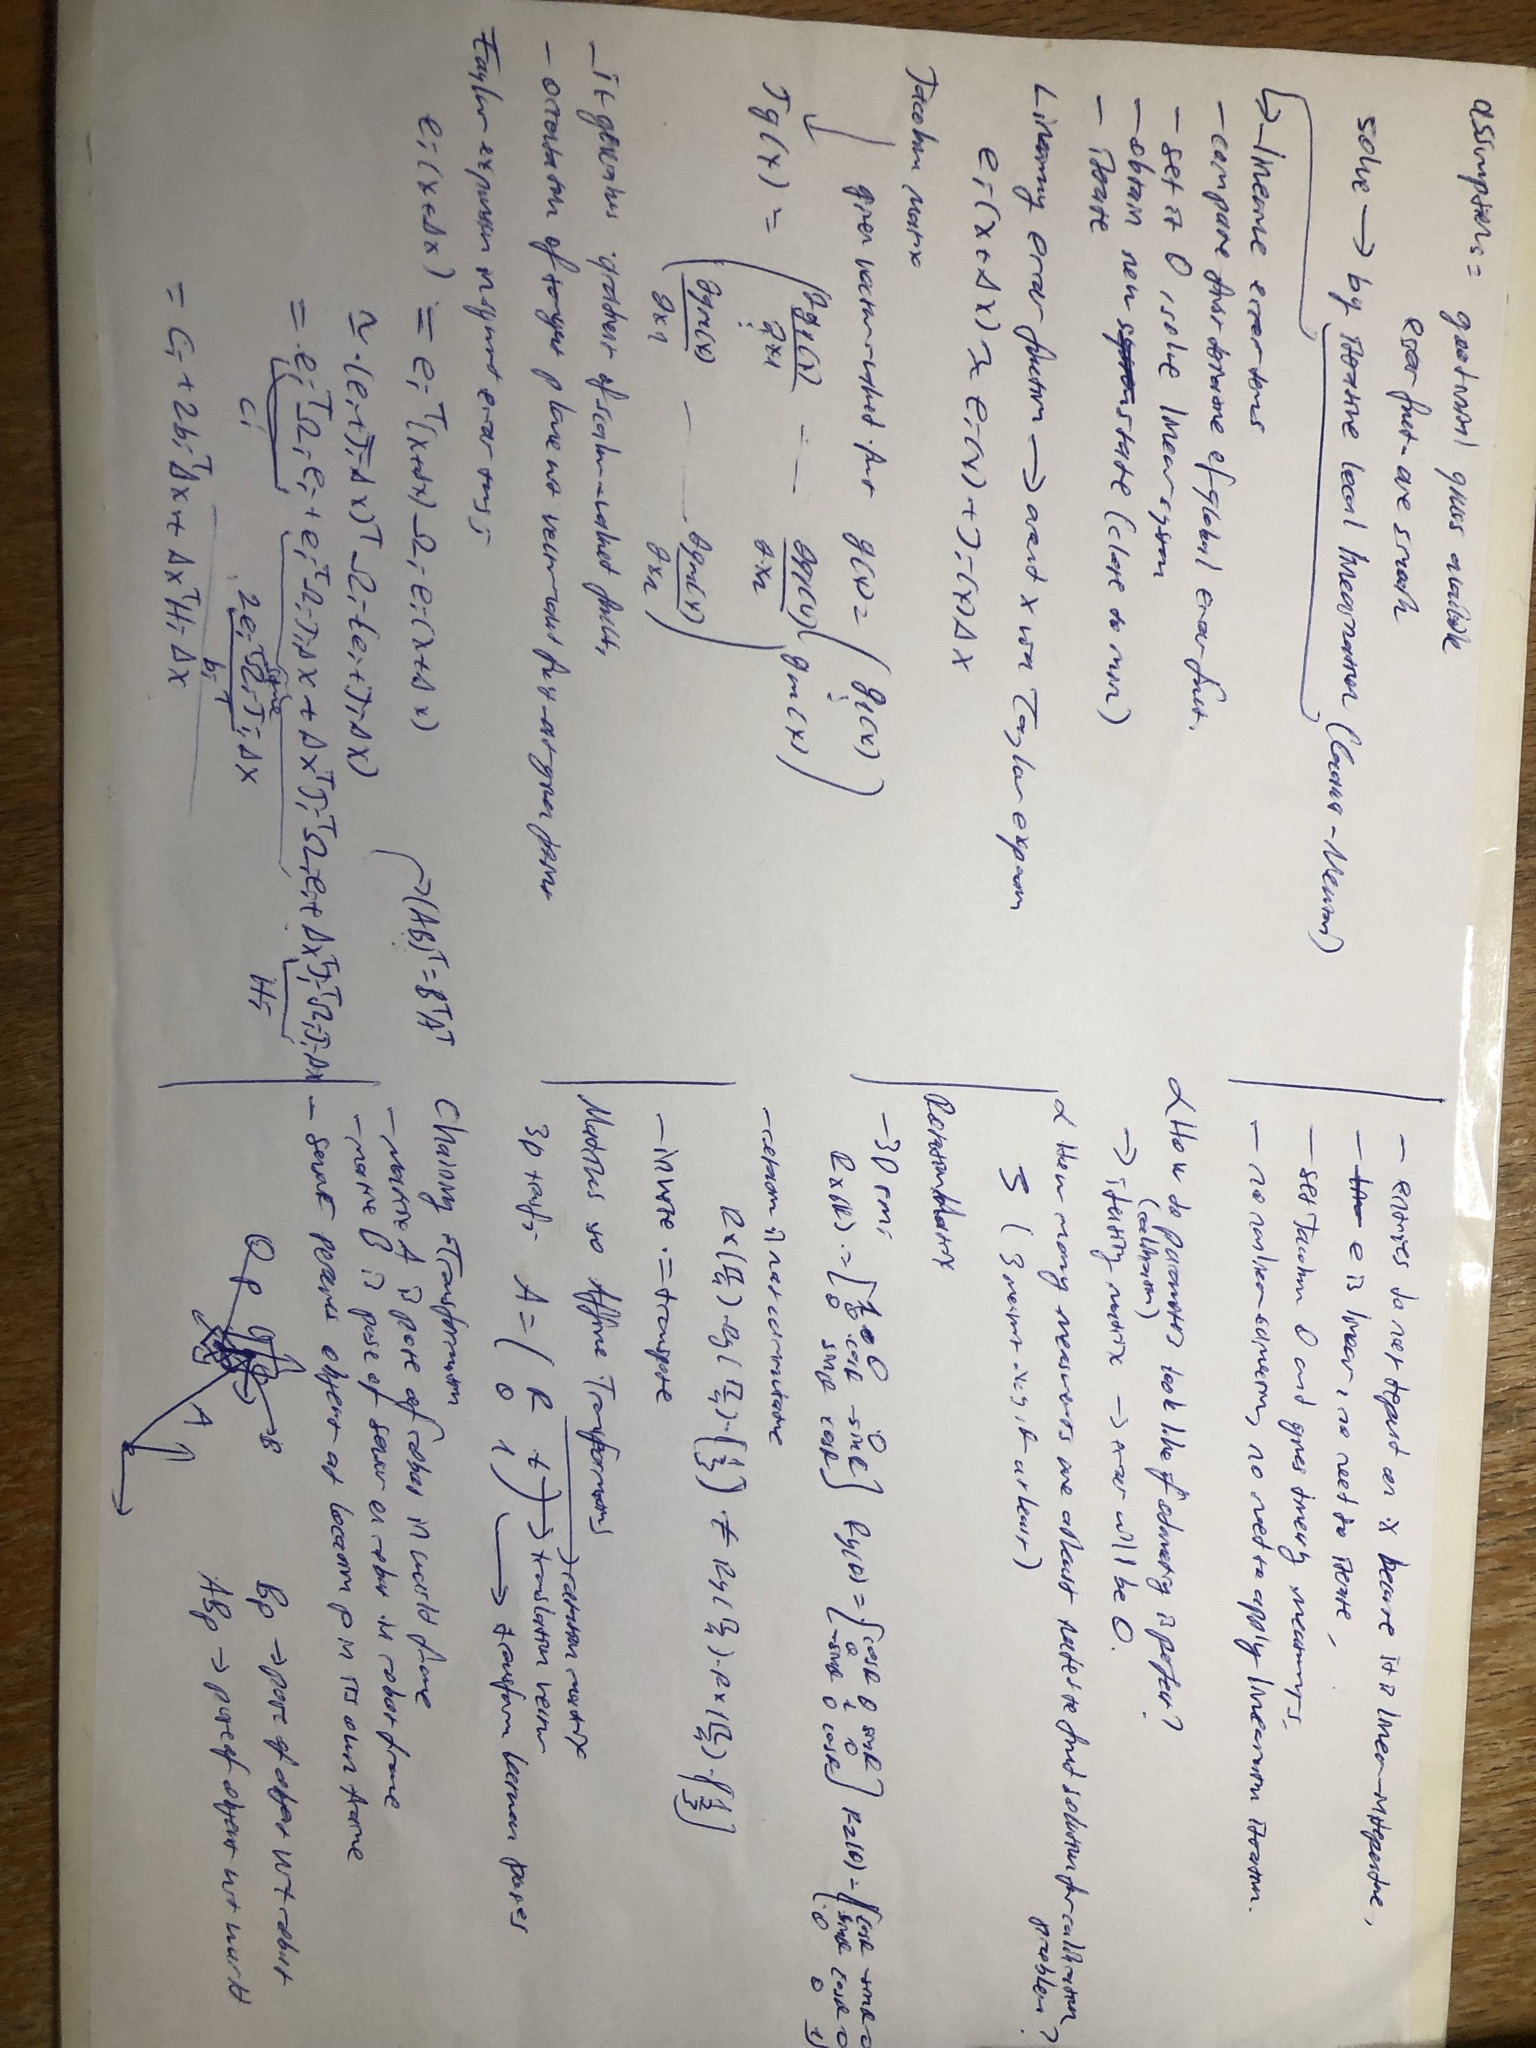 assumption = good initial guess available
error funct. are small
solve → by iterative local linearization (Gauss-Newton)
↳ linearize error terms
- compute first derivative of global error funct.
- set it 0, solve linear system
- obtain new state (close to min)
- iterate
Linearing error function → around x via Taylor expansion
ei(x+Δx) ≈ ei(x) + Ji(x)Δx
Jacobian matrix
↓ given vector-valued funct g(x) = ( g1(x) ⋮ gm(x) )
Jg(x) = ( ∂g1(x)/∂x1 -- ∂g1(x)/∂xn
⋮
∂gm(x)/∂x1 -- ∂gm(x)/∂xn )
- It generalizes gradient of scalar-valued functs,
- orientation of tangent plane wrt vector-valued funct at given point
Taylor expansion in squared error terms:
ei(x+Δx) = eiT(x+Δx) Ωi ei(x+Δx)
≃ (ei + JiΔx)T Ωi (ei + JiΔx) → (AB)T = BTAT
= eiTΩiei + eiTΩiJiΔx + ΔxTJiTΩiei + ΔxTJiTΩiJiΔx
ci 2eiTΩiJiΔx Hi
biT
= Ci + 2biTΔx + ΔxTHiΔx
- entries do not depend on x because it is linear-independent,
- e is linear, no need to iterate,
- set Jacobian 0 and gives directly
- no need to apply linearization iteration.
α How do parameters look like if odometry is perfect?
(calibration)
→ identity matrix → error will be 0.
α How many measurements are at least needed to find solution for calibration problem?
3 (3 at least)
Rotation Matrix
- 3D
Rx(θ) = [1 0 0 0 cosθ -sinθ 0 sinθ cosθ] Ry(θ) = [cosθ 0 sinθ 0 1 0 -sinθ 0 cosθ] Rz(θ) = [cosθ -sinθ 0 sinθ cosθ 0 0 0 1]
- rotation is not commutative
Rx(π/4) · Ry(π/4) · (1 2 3) ≠ Ry(π/4) · Rx(π/4) · (1 2 3)
- inverse = transpose
Matrices to Affine Transformations
→ rotation matrix
3D transf. A = ( R t 0 1 ) → translation vector
→ transform between poses
Chaining Transformation
- matrix A is pose of robot in world frame
- matrix B is pose of sensor on robot in robot frame
- sensor perceives object at location p in its own frame
P B A
Bp → pose of object wrt robot
ABp → pose of object wrt world